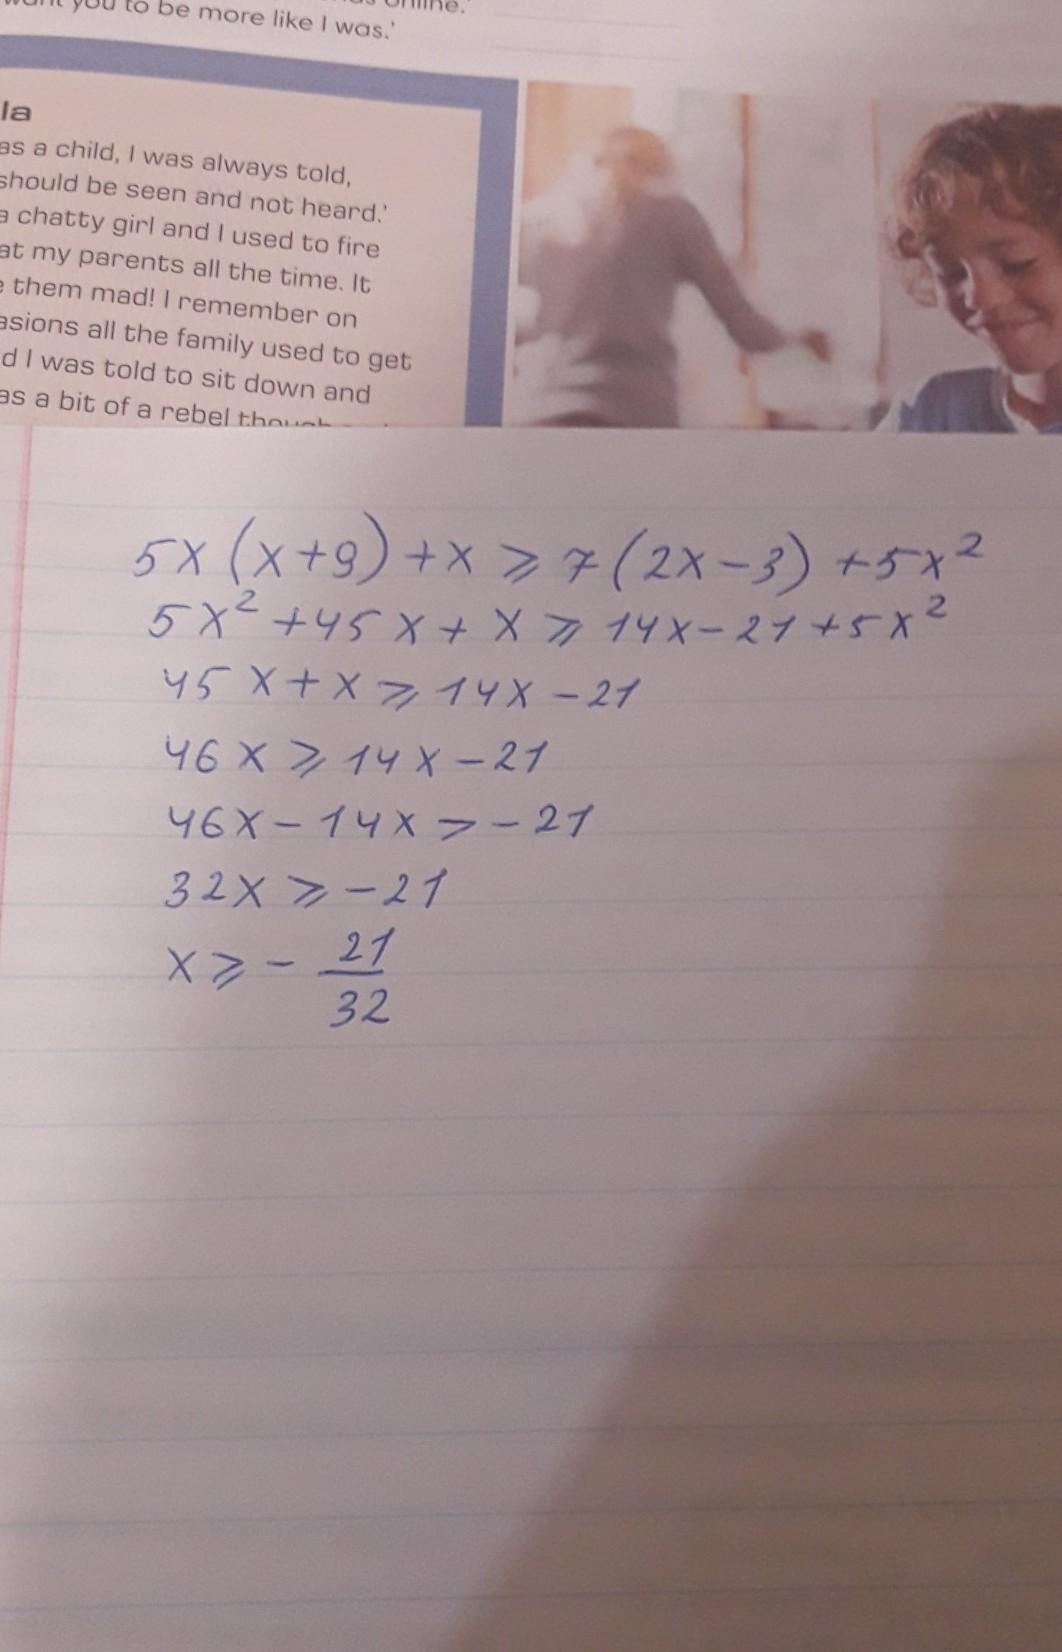 you to be more like I was.'
la
as a child, I was always told,
should be seen and not heard.'
a chatty girl and I used to fire
at my parents all the time. It
them mad! I remember on
all the family used to get
I was told to sit down and
as a bit of a rebel though
5x(x+9)+x⩾7(2x-3)+5x²
5x²+45x+x⩾14x-21+5x²
45x+x⩾14x-21
46x⩾14x-21
46x-14x>-21
32x⩾-21
x⩾-21/32